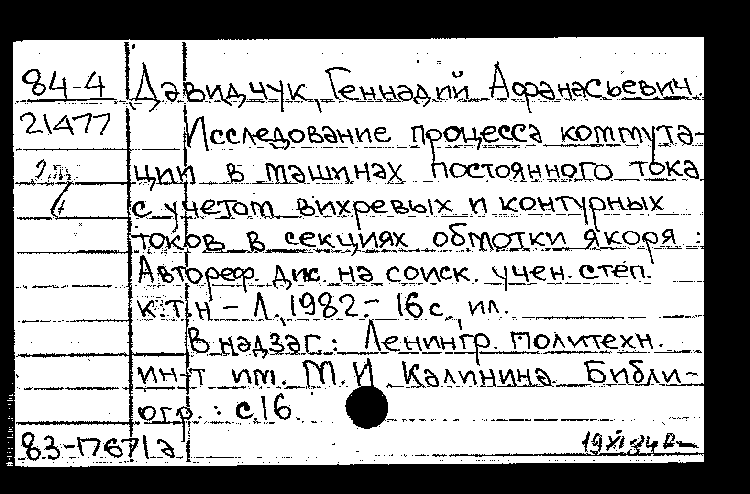 84-4 Давидчук, Геннадий Афанасьевич.
21477 Исследование процесса коммута-
ции в машинах постоянного тока
с учетом вихревых и контурных
токов в секциях обмотки якоря :
Автореф. дис. на соиск. учен. степ.
к.т.н – Л., 1982.– 16 с., ил.
В надзаг.: Ленингр. политехн.
ин-т им. М.И. Калинина. Библи-
огр. : с.16.
83-17671а 19 XI 84